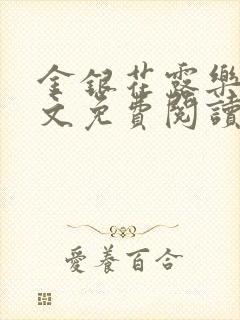 金銀花露樂
文免費閱讀
愛養百合